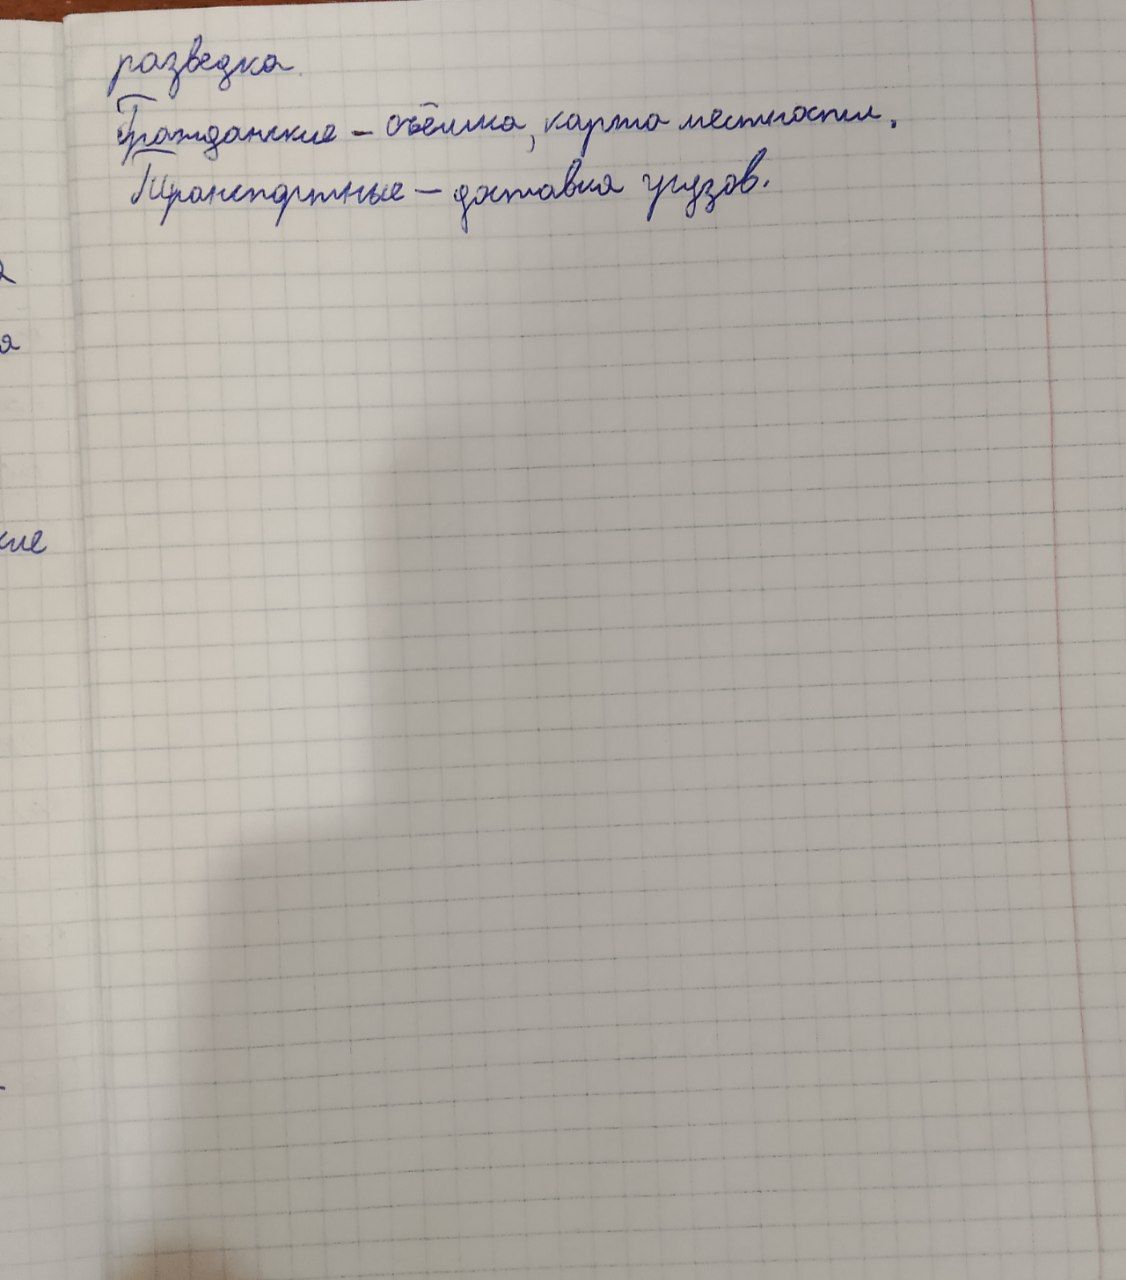 разведка.
Гражданские – съёмка, карта местности.
Транспортные – доставка грузов.
кие